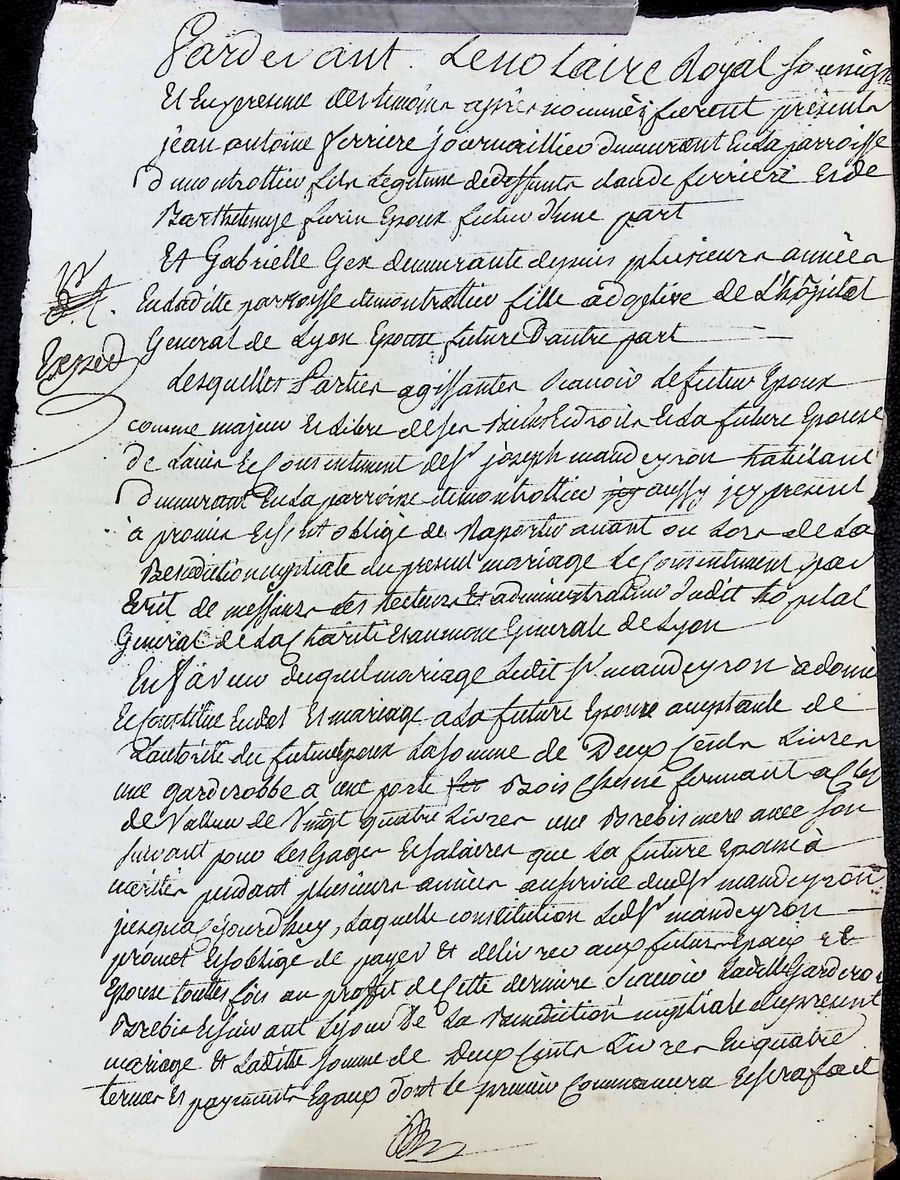 Pardevant Le notaire Royal soussign
Et En presence des temoins apres nommés furent présents
jean antoine ferriere journaillier demeurant En La parroisse
de montrottier fils Legitime de deffunts claude ferriere Et de
Barthelemye furin Epoux futur d'une part
Et Gabrielle Gex demeurante depuis plusieurs années
En Laditte parroisse de montrottier fille adoptive de L'hôpital
General de Lyon Epouse future D'autre part
Exped
Lesquelles Parties agissantes Scavoir Le futur Epoux
comme majeur Et Libre de ses Biens Et droits Et La future Epouse
de L'avis Et Consentement de Sr joseph mandeyron habitant
demeurant En La parroisse de montrottier aussy jcy present
à promis Et s'Est obligé de Raporter avant ou Lors de La
Benediction nuptiale du present mariage Le Consentement par
Ecrit de messieurs Les Recteurs Et administrateurs dudit hôpital
General de La Charité Et aumone Generale de Lyon
En faveur duquel mariage Ledit Sr mandeyron a donné
Et Constitue En dot Et mariage a La future Epouse acceptante de
L'autorité du futur Epoux La somme de Deux Cents Livres
une garderobbe a une porte Bois Chesne fermant a Clef
de Valleur de Vingt quatre Livres une Brebis mere avec son
suivant pour Les Gages Et salaires que La future Epouse à
mérités pendant plusieurs années au service dudt Sr mandeyron
jusqua Ce jourdhuy, Laquelle constitution Ledt Sr mandeyron
promet Et s'oblige de payer Et délivrer aux futurs Epoux Et
Epouse touttes fois au proffit de Cette derniere Scavoir Laditte Garderob
Brebis Et suivant Le jour De La Benediction nuptiale du present
mariage Et Laditte somme de Deux Cents Livres En quatre
termes Et payments Egaux dont le premier Commencera Et sera fait